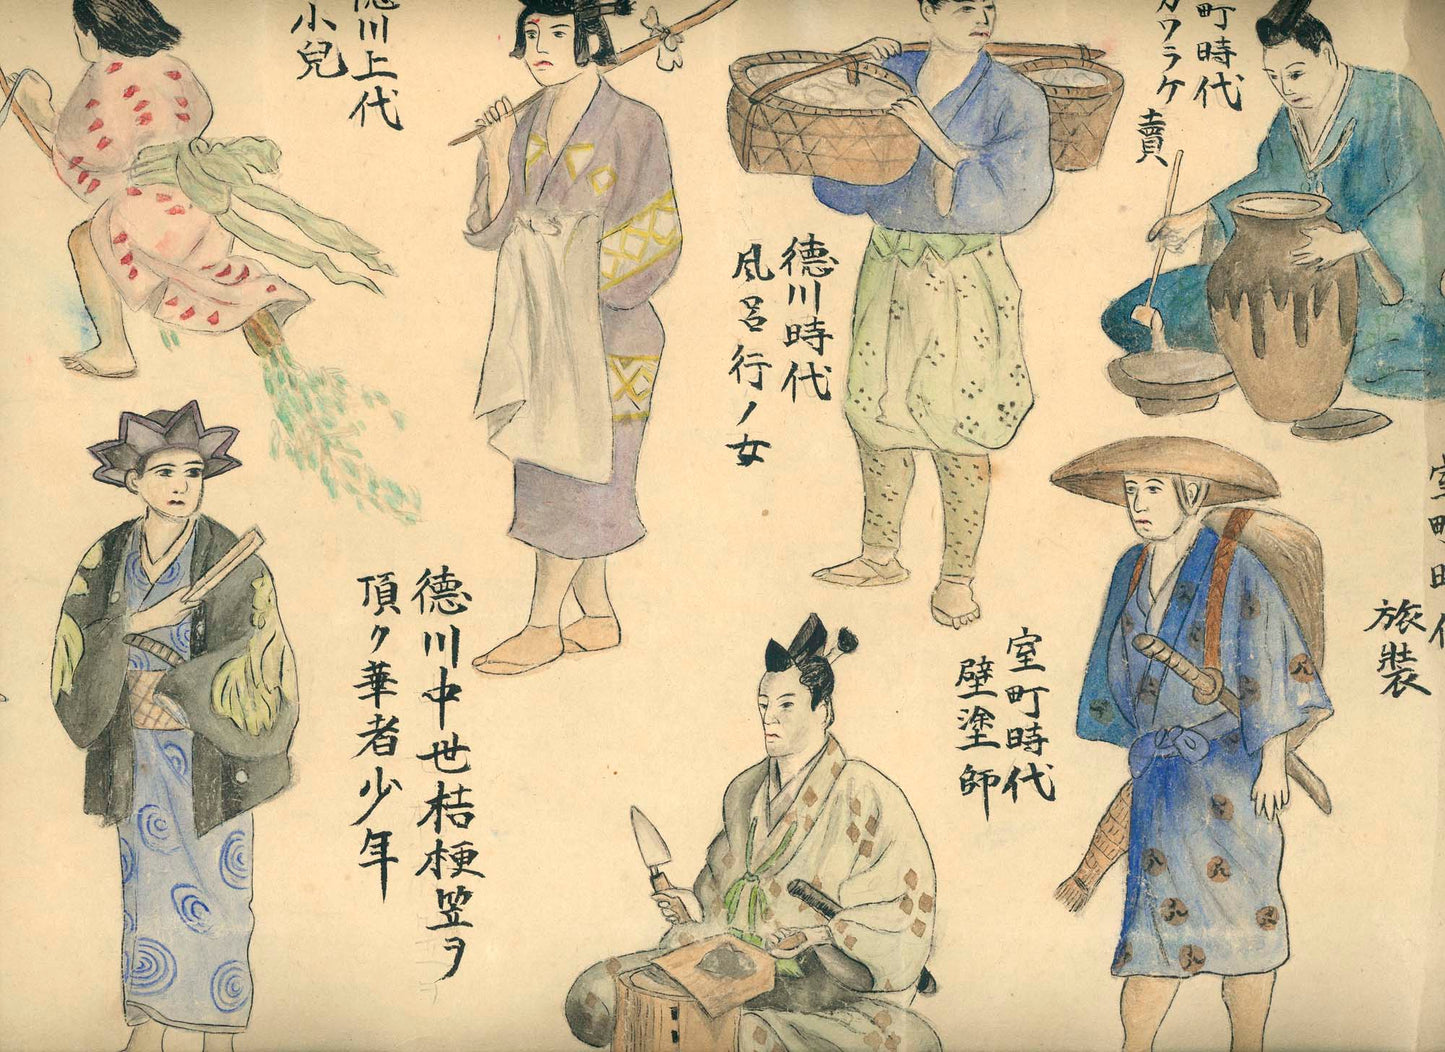 町時代
カワラケ賣
徳川上代
小兒
徳川時代
風呂行ノ女
室町時代
旅裝
室町時代
壁塗師
徳川中世桔梗笠ヲ
頂ク華者少年